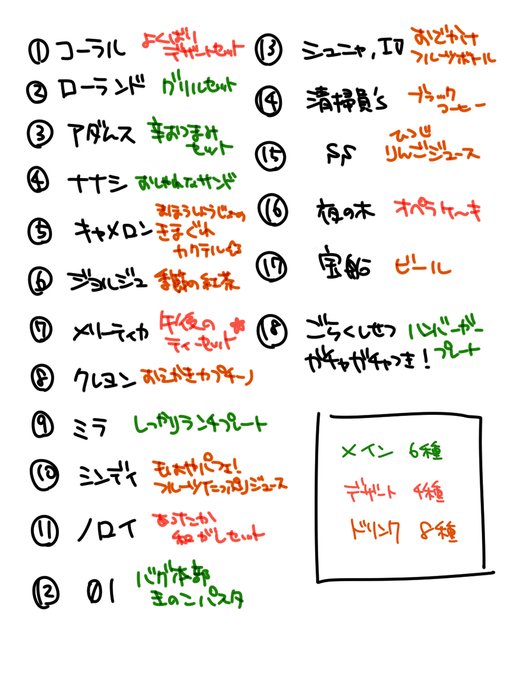 ① コーラル よくばり
デザートセット
② ローランド グリルセット
③ アダムス 辛おつまみ
セット
④ ナナシ おしゃれなサンド
⑤ キャメロン まほうしょうじょの
きまぐれ
カクテル☆
⑥ ジョルジュ 季節の紅茶
⑦ メリーティカ 午後の
ティーセット
⑧ クレヨン おえかきカプチーノ
⑨ ミラ しっかりランチプレート
⑩ シンディ もはやパフェ!
フルーツたっぷりジュース
⑪ ノロイ あったか
和がしセット
⑫ 01 バグ本部
きのこパスタ
⑬ シュニャ,エワ おでかけ
フルーツボトル
⑭ 清掃員's ブラック
コーヒー
⑮ SS ひつじ
りんごジュース
⑯ 夜の木 オペラケーキ
⑰ 宝船 ビール
⑱ ごらくしせつ ハンバーガー
プレート
ガチャガチャつき!
メイン 6種
デザート 4種
ドリンク 8種